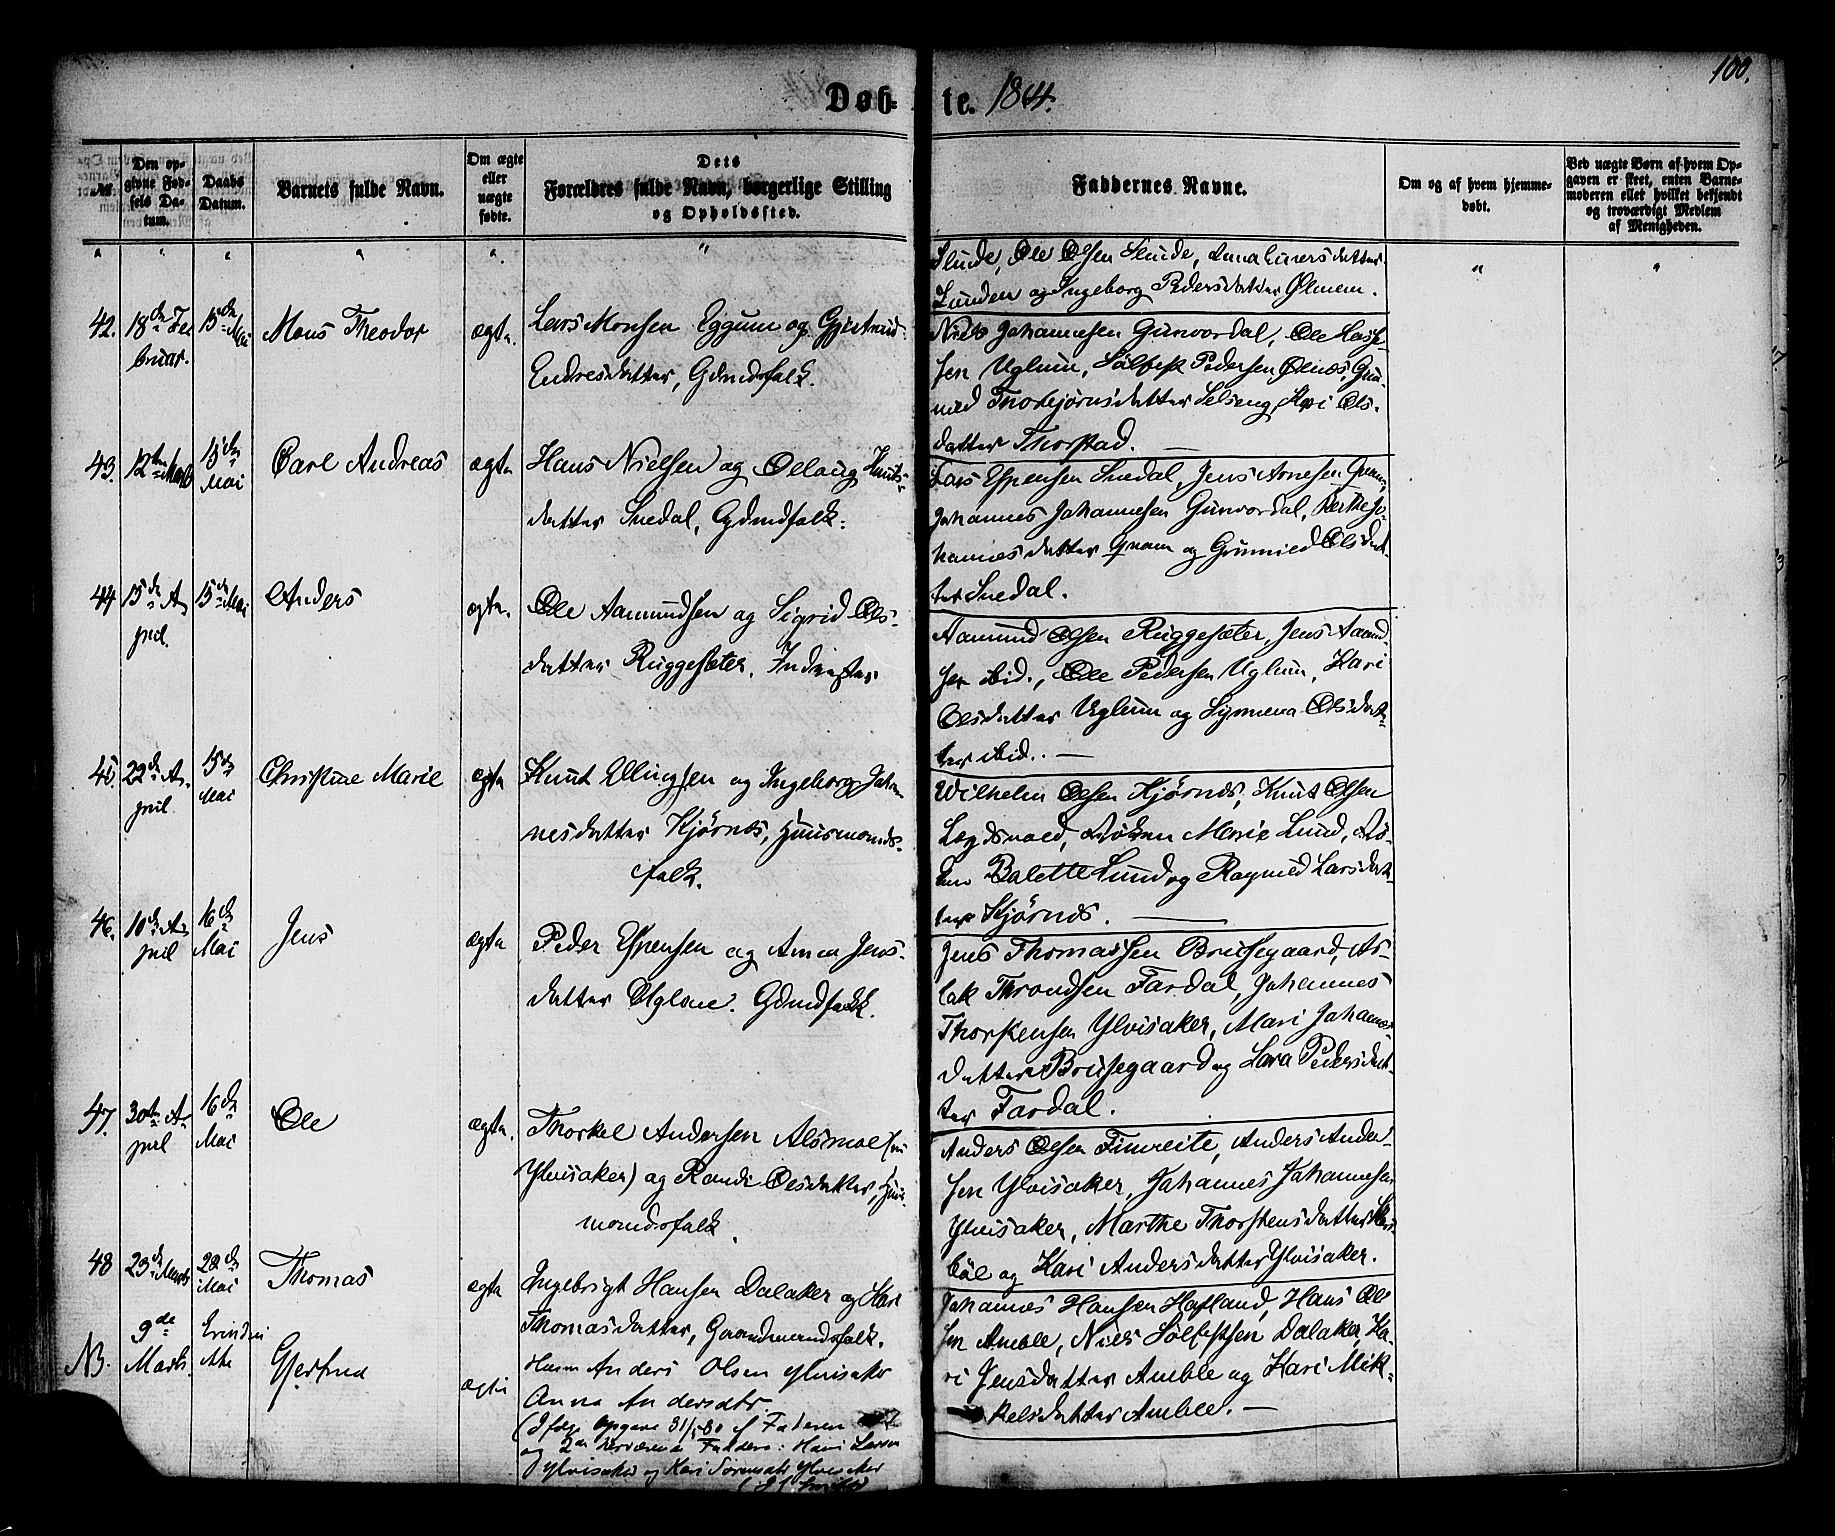 100.
Døbte. 1864.
No.
Den opgivne Fødsels Datum.
Daabs Datum.
Barnets fulde Navn.
Om ægte eller uægte fødte.
Dets Forældres fulde Navn, borgerlige Stilling og Opholdssted.
Faddernes Navne.
Om og af hvem hjemmedøbt.
Ved uægte Børn af hvem Opgaven er skeet, enten Barnemoderen eller hvilket bekjendt og troværdigt Medlem af Menigheden.
" " " " " "
Slinde, Ole Olsen Slinde, Anna Einersdatter
Lunden og Ingeborg Pedersdatter Ølmem.
" "
42. 18de Februar. 15de Mai Mons Theodor ægte.
Lars Monsen Eggum og Gjertrud
Endresdatter, Gdmdsfolk.
Niels Johannesen Gurvordal, Ole Lasse-
sen Uglum, Sølfest Pedersen Ølnæs, Gun-
nild Thorbjørnsdatter Selseng, Kari Ols-
datter Thorstad. —
43. 12te Marts 15de Mai Carl Andreas ægte
Hans Nielsen og Oelaug Knuts-
datter Snedal, Gdmdfolk.
Lars Espensen Snedal, Jens Arnesen Qvam,
Johannes Johannesen Gurvordal, Berthe Jo-
hannesdatter Qvam og Gunnild Olsdat-
ter Snedal.
44 15de April 15de Mai Anders ægte.
Ole Aamundsen og Sigrid Ols-
datter Ruggesæter. Inderster
Aamund Olsen Ruggesæter, Jens Aamund-
sen ibid., Ole Pedersen Uglum, Kari
Olsdatter Uglum og Synneva Olsdat-
ter ibid. —
45. 22de April 15de Mai Christine Marie ægte
Knut Ellingsen og Ingeborg Johan-
nesdatter Kjørnes, Huusmands-
folk.
Wilhelm Olsen Kjørnes, Knut Olsen
Lægdsvold, Frøken Marie Lund, Frø-
ken Balette Lund og Ragnild Larsdat-
ter Kjørnes. —
46. 10de April 16de Mai Jens ægte
Peder Espensen og Anna Jens-
datter Uglene. Gdmdfolk.
Jens Thomassen Brusegaard, As-
lak Throndsen Fardal, Johannes
Thorstensen Ylvisaker, Mari Johannes-
datter Brusegaard og Lara Pedersdat-
ter Fardal.
47. 30te April 16de Mai Ole ægte.
Thorkel Andersen Alsmoe (nu
Ylvisaker) og Randi Olsdatter, Huus-
mandsfolk.
Anders Olsen Fimreite, Anders Ander-
sen Ylvisaker, Johannes Johannesen
Ylvisaker, Marthe Thorstensdatter Skar-
bøl og Kari Andersdatter Ylvisaker.
48 23de Marts 22de Mai Thomas ægte
Ingebrigt Hansen Dalaker og Kari
Thomasdatter, Gaardmandsfolk.
Johannes Hansen Hafland, Hans Ol-
sen Amble, Niels Sølfestsen Dalaker, Ka-
ri Jensdatter Amble og Kari Mik-
kelsdatter Amble. —
NB. 9de Marts. Gjertrud ægte
Anders Olsen Ylvisaker
Anna Andersdtr.
(Ifølge Opgave 31/5 80 af Faderen
og 2de nærværende Faddere: Hans Larsen
Ylvisaker og Kari Sørensdtr Ylvisaker